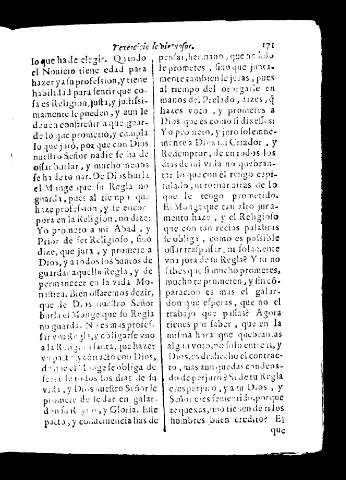 171
lo que ha de elegir. Quando
el Novicio tiene edad para
hazer ya su profession, y tiene
habilidad para sentir que co-
sa es Religion, justa, y justissi-
mamente le pueden, y aun le
deuen construir a que guar-
de lo que prometió, y cumpla
lo que juró, porque con Dios
nuestro Señor nadie se ha de
ossar burlar, y mucho menos
se ha de to
el Monge que su Regla no
guarda, pues al tiempo que
haze profession, y se encor-
pora en la Religion, no dize:
Yo prometo a mi Abad, y
Prior de ser Religioso, sino
dize, que jura, y promete a
Dios, y a todos los Santos de
guardar aquella Regla, y de
permanecer en la vida Mo-
nastica. Bien ossaremos dezir,
que de Dios nuestro Señor
burla el Monge que su Regla
no guarda. No es mas profes-
sar vna Regla, y obligarse vno
a la Religion santa, que hazer
vn pacto, y contracto con Dios,
de que el Monge se obliga de
servirle todos los dias de su
vida, y Dios nuestro Señor le
promete de le dar en galar-
don su Reyno, y Gloria. Este
pacto, y condicion ha de
pensar, hermano, que no solo
le prometes, sino que junta-
mente tambien le juras, pues
al tiempo del otorgarle en
manos del Prelado, dizes, q̃
hazes voto, y prometes a
Dios que es como si dixesses:
Yo prometo, y juro solemne-
mente a Dios mi Criador, y
Redemptor, de en todos los
dias de mi vida no quebran-
tar lo que con él tengo capi-
tulado, ni tornar atras de lo
que le tengo prometido.
El Monge que tan alto jura-
mento haze, y el Religioso
que con tan recias palabras
se obliga, como es possible
ossar traspassar, ni solamente
vna jura de su Regla? Y tu no
sabes que si mucho prometes,
mucho te prometen, y sin có-
paracion es mas el galar-
don que esperas, que no el
trabajo que passas? Agora
tienes por saber, que en la
misma hora que quebrantas
algun voto, no solo entre ti, y
Dios, es deshecho el contrac-
to, mas aun quedas condena-
do de perjuro? Si de tu Regla
eres perjuro, y a tu Dios, y
Señor eres fementido, porque
te quexas, si no tienen de ti los
hombres buen credito? El
que